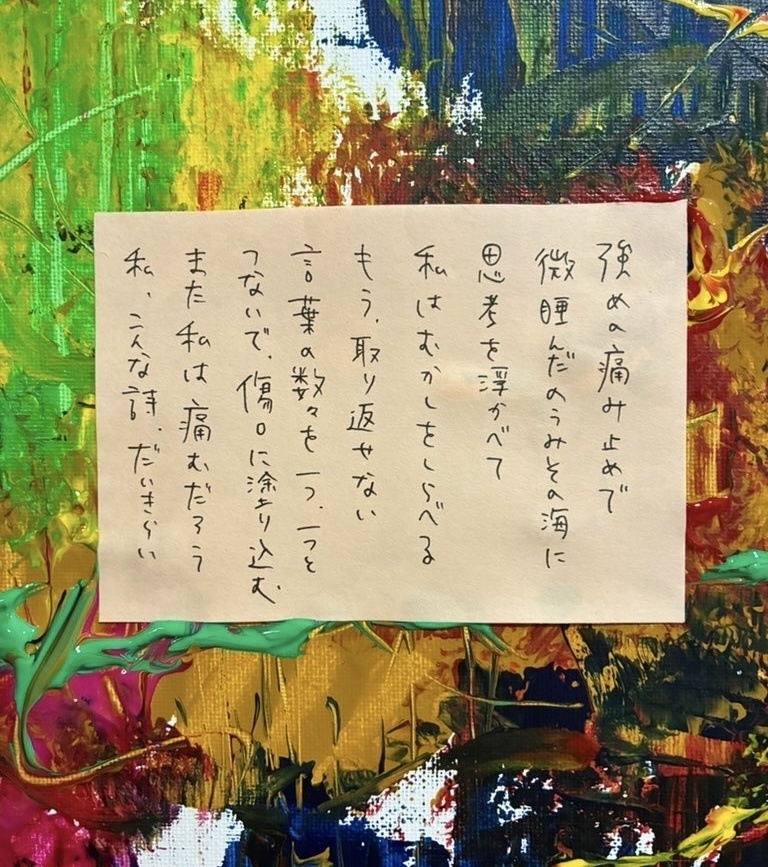 強めの痛み止めで
微睡んだのうみその海に
思考を浮かべて
私はむかしをしらべる
もう、取り返せない
言葉の数々を一つ、一つと
つないで、傷口に塗り込む
また私は痛むだろう
私、こんな詩、だいきらい